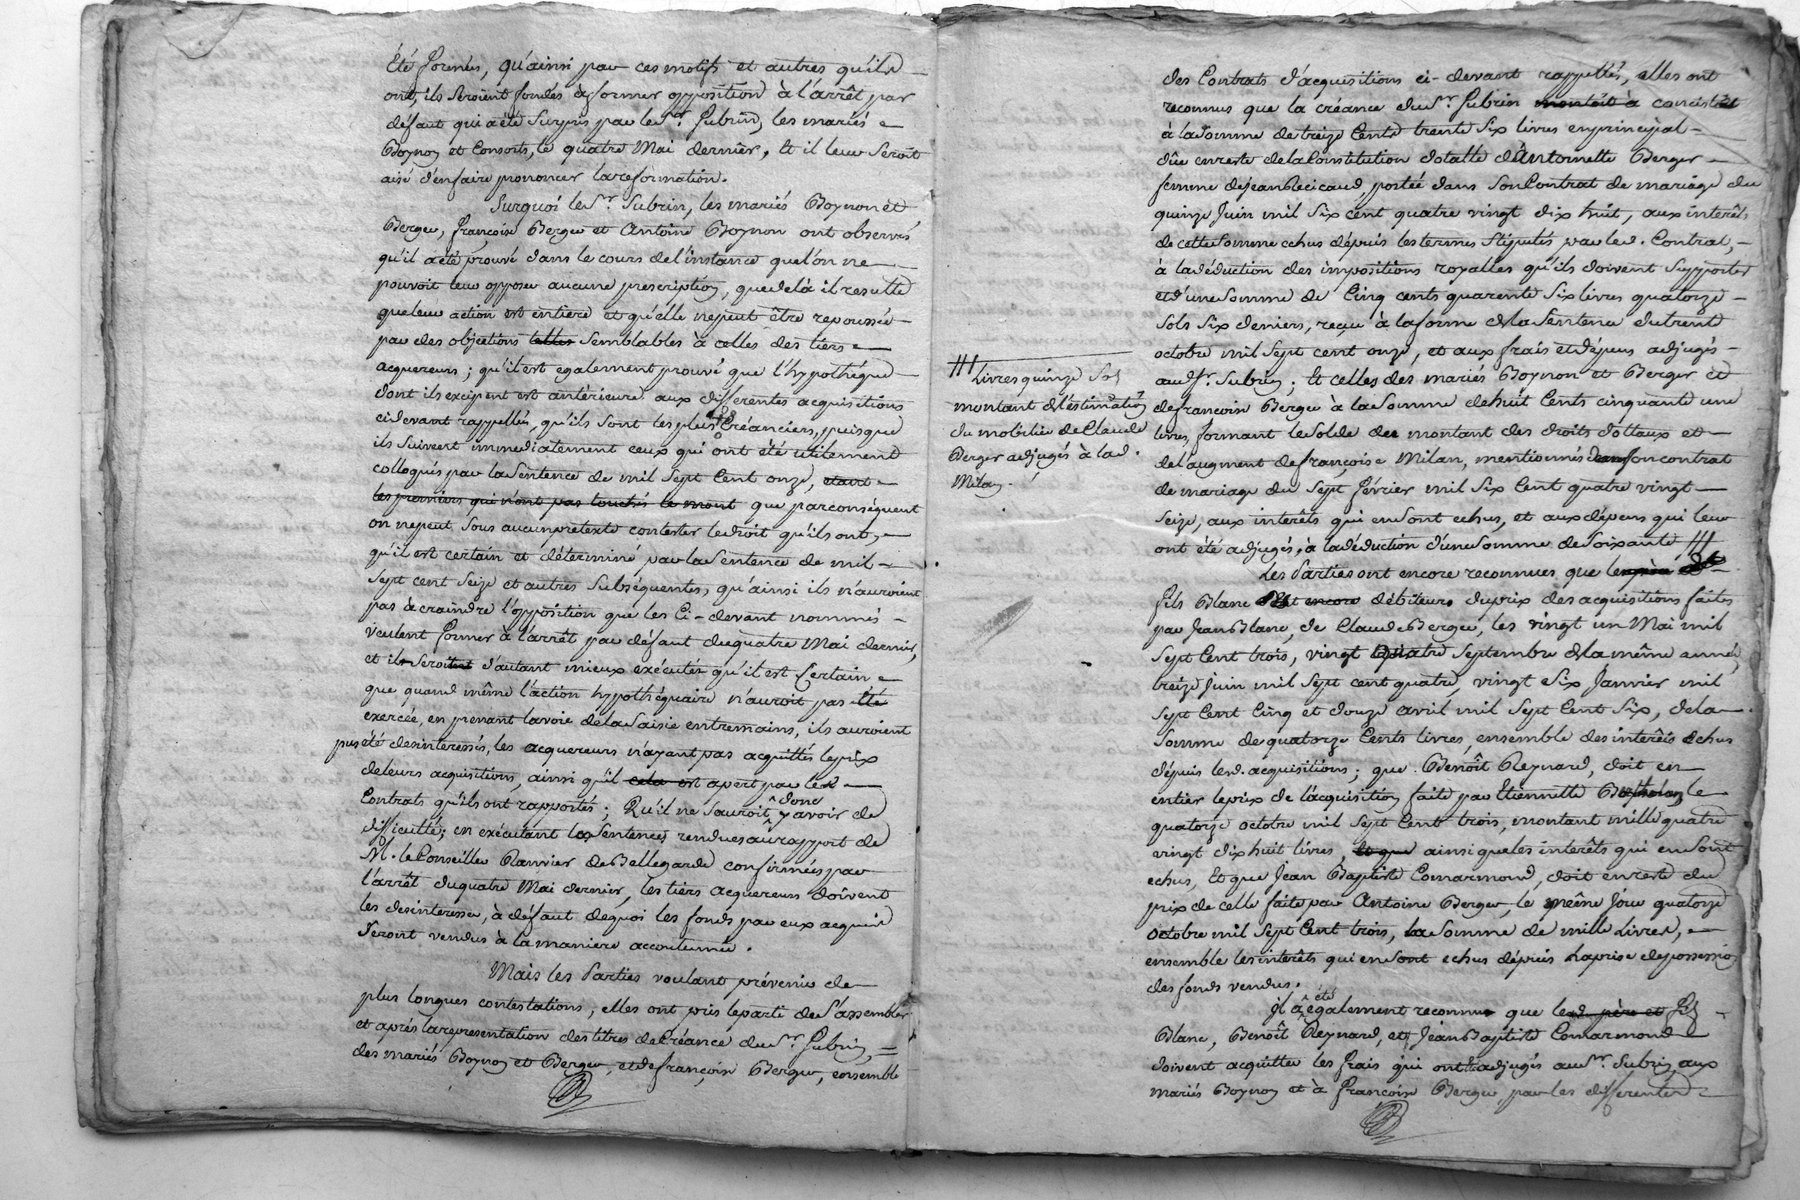 Eté formées, qu'ainsi par ces motifs et autres qu'ils
ont, ils seroient fondés à former opposition à l'arrêt par
défaut qui a été surpris par le Sr. Subrin, les mariés
Boynon et Consorts, le quatre Mai dernier, Et il leur seroit
aisé d'en faire prononcer la reformation.
Surquoi le Sr. Subrin, les mariés Boynon et
Berger, françoise Berger et Antoine Boynon ont observés
qu'il a été prouvé dans le cours de l'instance que l'on ne
pouvoit leur opposer aucune prescription, que delà il resulte
que leur action est entiere et qu'elle ne peut être repoussée
par des objections telles semblables à celles des tiers
acquereurs; qu'il est egalement prouvé que l'hypothéque
dont ils excipent est antérieure aux differentes acquisitions
ci devant rappellés, qu'ils sont les plus Créanciers, puisque
ils suivent immediatement ceux qui ont été utilement
colloqués par la Sentence de mil Sept Cent onze, étant
les premiers qui n'ont pas touchés le mont que par conséquent
on ne peut sous aucun pretexte contester le droit qu'ils ont,
qu'il est certain et déterminé par la Sentence de mil
Sept cent Seize et autres Subséquentes, qu'ainsi ils n'auroient
pas à craindre l'opposition que les Ci-devant nommés
veulent former à l'arrêt par défaut du quatre Mai dernier,
et ils seroient d'autant mieux exécutés qu'il est Certain
que quand même l'action hypothéquaire n'auroit pas été
exercée, en prenant la voie de la Saisie entre mains, ils auroient
pus été desinteressés, les acquereurs n'ayant pas acquittés le prix
de leurs acquisitions, ainsi qu'il cela est apert par les
Contrats qu'ils ont rapportés; Qu'il ne sauroit donc y avoir de
difficulté; en exécutant les Sentences rendues au rapport de
M. le Conseiller Ranvier de Bellegarde confirmées par
l'arrêt du quatre Mai dernier, les tiers acquereurs doivent
les desinteresser, à défaut de quoi les fonds par eux acquis
Seront vendus à la maniere accoutumée.
Mais les Parties voulant prévenir de
plus longues contestations, elles ont pris le parti de S'assembler
et aprés la representation des titres de Créance du Sr. Subrin,
des mariés Boynon et Berger, et de françoise Berger, ensemble
des Contrats d'acquisitions ci-devant rappellés, elles ont
reconnus que la créance du Sr. Subrin montoit à consistoit
à la Somme de treize Cents trente Six livres en principal
düe en reste de la Constitution dotalle d'Antoinette Berger
femme de Jean Recicaud, portée dans Son Contrat de mariage du
quinze Juin mil Six cent quatre vingt dix huit, aux intérêts
de cette Somme echus dépuis les termes Stipulés par led. Contrat,
à la déduction des impositions royalles qu'ils doivent Supporter
et d'une Somme de Cinq cents quarente Six livres quatorze
Sols Six deniers, reçue à la forme de la Sentence du trente
octobre mil Sept cent onze, et aux frais et dépens adjugés
aud. Sr. Subrin; Et celles des mariés Boynon et Berger et
de francoise Berger à la Somme de huit Cents cinquante une
livres, formant le Solde du montant des droits dottaux et
de l'augment de françoise Milan, mentionnés dans son contrat
de mariage du Sept février mil Six Cent quatre vingt
Seize, aux interêts qui en Sont echus, et aux dépens qui leur
ont été adjugés, à la déduction d'une Somme de Soixante ///
/// Livres quinze Sols
montant de l'estimation
du mobilier de Claude
Berger adjugés à lad.
Milan.
Les Parties ont encore reconnues que
fils Blanc encore débiteurs du prix des acquisitions faites
par Jean Blanc, de Claude Berger, les vingt un Mai mil
Sept Cent trois, vingt quatre Septembre de la même année,
treize Juin mil Sept cent quatre, vingt Six Janvier mil
Sept Cent Cinq et douze avril mil Sept Cent Six, de la
Somme de quatorze Cents livres, ensemble des intérêts echus
dépuis lesd. acquisitions; que Benoît Reynard, doit en
entier le prix de l'acquisition faite par Etiennette Bertholon, le
quatorze octobre mil Sept Cent trois, montant mille quatre
vingt dix huit livres, et que ainsi que les intérêts qui en Sont
echus, Et que Jean Baptiste Comarmond, doit en reste du
prix de celle faite par Antoine Berger, le même jour quatorze
Octobre mil Sept Cent trois, la Somme de mille Livres,
ensemble les intérêts qui en Sont echus dépuis la prise de possession
des fonds vendus.
Il a été également reconnu que led. père et fils
Blanc, Benoît Reynard, et Jean Baptiste Comarmond
doivent acquitter les frais qui ont adjugés au Sr. Subrin, aux
mariés Boynon et à françoise Berger, par les differentes